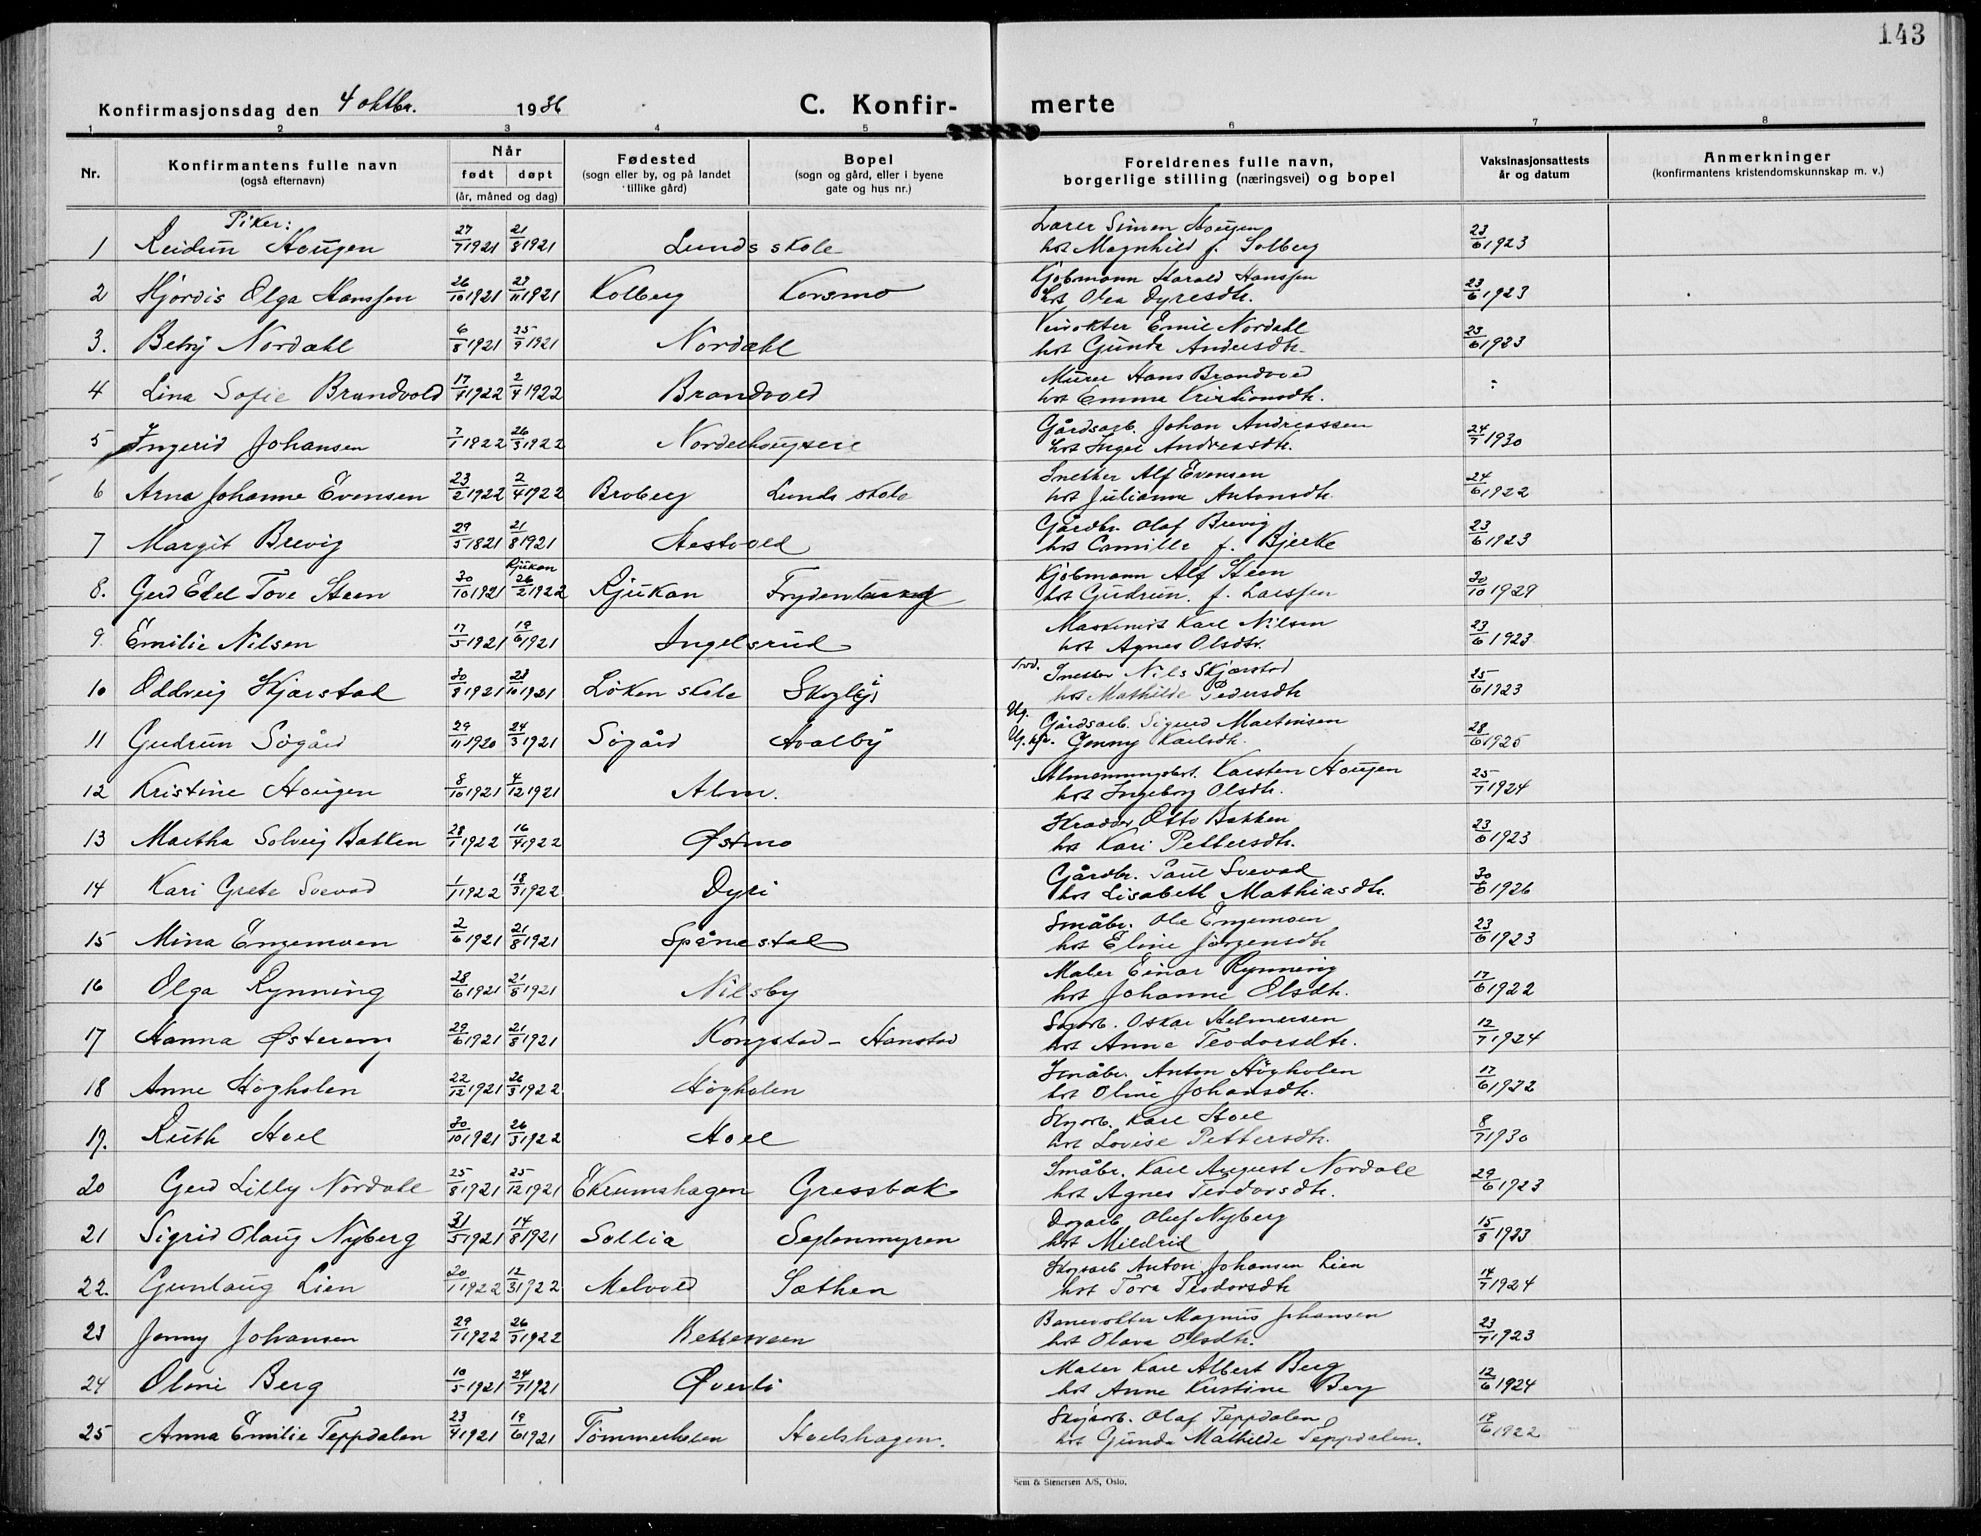 143
Konfirmasjonsdag den 4 oktbr. 1936 C. Konfir- merte
1 2 3 4 5 6 7 8
Nr. Konfirmantens fulle navn (også efternavn) Når født døpt (år, måned og dag) Fødested (sogn eller by, og på landet tillike gård) Bopel (sogn og gård, eller i byene gate og hus nr.) Foreldrenes fulle navn, borgerlige stilling (næringsvei) og bopel Vaksinasjonsattests år og datum Anmerkninger (konfirmantens kristendomskunnskap m. v.)
Piker:
1 Reidun Haugen 27/7 1921 21/8 1921 Lunds skole Lærer Simen Haugen
hst Magnhild f. Solberg 23/6 1923
2 Hjördis Olga Hanssen 26/10 1921 27/11 1921 Kolberg Korsmo Kjöbmann Harald Hanssen
hst Olea Dyresdtr. 23/6 1923
3. Betsy Nordahl 6/8 1921 25/9 1921 Nordahl Veivokter Emil Nordahl
hst Gunda Andersdtr. 23/6 1923
4 Lina Sofie Brandvold 17/1 1922 2/4 1922 Brandvold Murer Hans Brandvold
hst Emma Kristiansdtr. -:-
5 Ingerid Johansen 7/1 1922 26/3 1922 Norderhougseie Gårdsarb. Johan Andreassen
hst Inger Andreasdtr. 24/7 1930
6 Arna Johanne Evensen 23/2 1922 2/4 1922 Broberg Lunds skole Snekker Alf Evensen
hst Julianne Antonsdtr. 24/6 1922
7 Margit Brevig 29/5 1821 21/8 1921 Hestvold Gårdbr. Olaf Brevig
hst Camilla f. Bjerke 23/6 1923
Rjukan
8. Gerd Edel Tove Steen 30/10 1921 26/2 1922 Rjukan Frydenlund Kjöbmann Alf Steen
hst Gudrun f. Larssen 30/10 1929
9. Emilie Nilsen 17/5 1921 19/6 1921 Ingelsrud Maskinist Karl Nilsen
hst Agnes Olsdtr. 23/6 1923
10 Oddveig Skjærstad 30/8 1921 23/10 1921 Löken skole Skogly Snekker Nils Skjærstad
hst Mathilde Pedersdtr 25/6 1923
11 Gudrun Sögård 29/11 1920 24/3 1921 Sögård Hvalby Ug. Gårdsarb. Sigurd Martinsen
Ug. kv. Jenny Karlsdtr. 28/6 1925
12 Kristine Haugen 8/10 1921 4/12 1921 Alm. Almenningsbest. Karsten Haugen
hst Ingeborg Olsdtr. 25/7 1924
13 Martha Solveig Bakken 28/1 1922 16/4 1922 Østmo Skrædder Otto Bakken
hst Kari Pettersdtr. 23/6 1923
14 Kari Grete Svevad 1/1 1922 18/3 1922 Dyri Gårdbr. Paul Svevad
hst Lisabeth Mathiasdtr. 30/6 1926
15 Mina Engemoen 2/6 1921 21/8 1921 Spånestad Småbr. Ole Engemoen
hst Eline Jörgensdtr 23/6 1923
16 Olga Rynning 28/6 1921 21/8 1921 Nilsby Maler Einar Rynning
hst Johanne Olsdtr. 17/6 1922
17 Hanna Østereng 29/6 1921 21/8 1921 Kongstad - Hanstad Oskar Helmersen
hst Anna Teodorsdtr. 12/7 1924
18 Anne Högholen 22/12 1921 26/3 1922 Högholen Småbr. Anton Högholen
hst Oline Johansdtr. 17/6 1922
19. Ruth Hoel 30/10 1921 26/3 1922 Hoel Skogarb. Karl Hoel
hst Lovise Pettersdtr. 8/7 1930
20 Gerd Lilly Nordahl 25/8 1921 25/12 1921 Ekrumshagen Gressbak Småbr. Karl August Nordahl
hst Agnes Teodorsdtr. 29/6 1923
21 Sigrid Olaug Nyberg 31/5 1921 14/8 1921 Sollia Seglenmyren Dagarb. Oluf Nyberg
hst Mildrid 15/8 1933
22. Gunlaug Lien 20/1 1922 12/3 1922 Melvold Sæthen Skogsarb Anton Johansen Lien
hst Tora Teodorsdtr 14/7 1924
23 Jenny Johansen 29/1 1922 26/3 1922 Banevokter Magnus Johansen
hst Olava Olsdtr. 23/7 1923
24 Oline Berg 10/5 1921 24/7 1921 Øverli Maler Karl Albert Berg
hst Anne Kristine Berg 12/6 1924
25 Anna Emilie Teppdalen 23/4 1921 19/6 1921 Tömmerholen Hoelshagen. Skogsarb. Olaf Teppdalen
hst Gunda Mathilde Teppdalen. 19/6 1922
Sem & Stenersen A/S, Oslo.